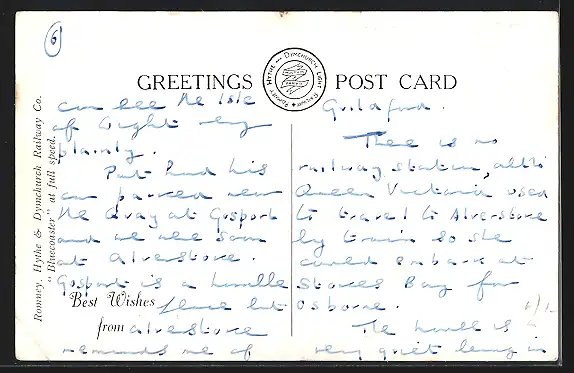 6
GREETINGS POST CARD
ROMNEY HYTHE & DYMCHURCH LIGHT RAILWAY
Romney, Hythe & Dymchurch Railway Co.
"Bluecoaster" at full speed.
can see the Isle
of Wight very
plainly.
Pat had his
car parked near
the Quay at Gosport
and we were soon
at Alverstoke.
Gosport is a horrible
Best Wishes
place but
from
Alverstoke
reminds me of
Guildford.
There is no
railway station, altho'
Queen Victoria used
to travel to Alverstoke
by train so she
could embark at
Stokes Bay for
Osborne.
The house is
very quiet being in